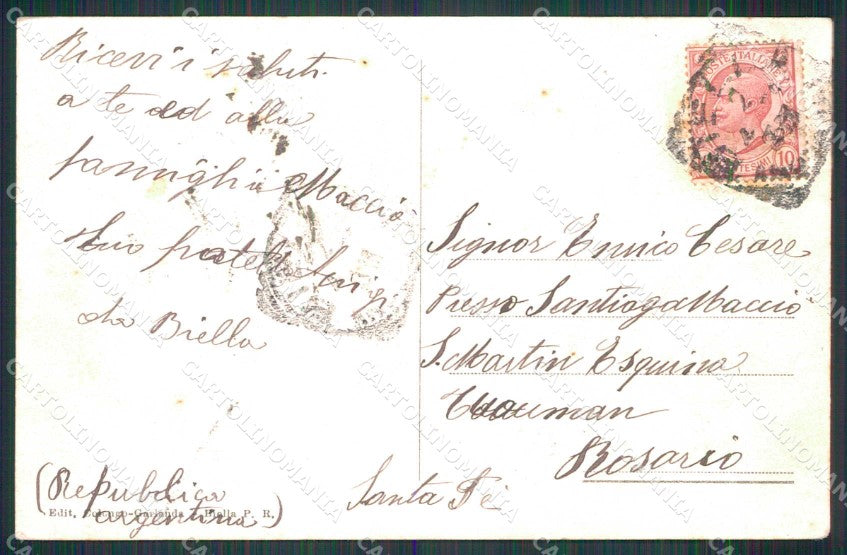 Ricevi i saluti
a te ed alla
famiglia Macciò
tuo fratello Luigi
da Biella
(Repubblica
argentina)
Santa Fè
Edit. - Biella P. R.
POSTE ITALIANE
10
Signor Enrico Cesare
Presso Santiago Macciò
S. Martin Esquina
Tucuman
Rosario
CARTOLINOMANIA